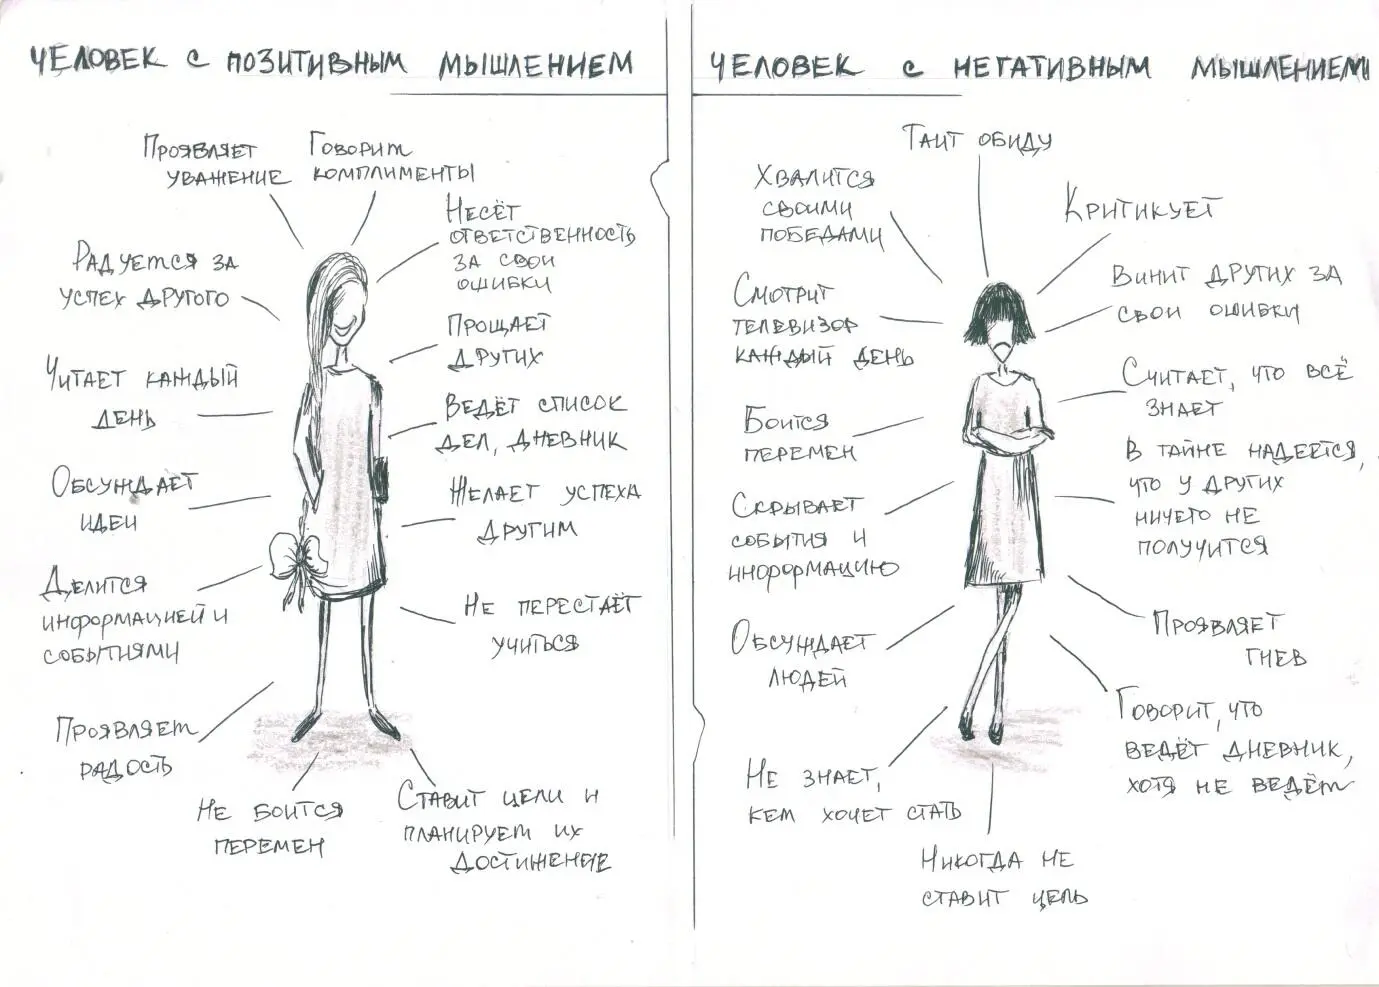 ЧЕЛОВЕК С ПОЗИТИВНЫМ МЫШЛЕНИЕМ
Проявляет
уважение
Говорит
комплименты
Несёт
ответственность
за свои
ошибки
Радуется за
успех другого
Прощает
других
Читает каждый
день
Ведёт список
дел, дневник
Обсуждает
идеи
Желает успеха
другим
Делится
информацией и
событиями
Не перестаёт
учиться
Проявляет
радость
Не боится
перемен
Ставит цели и
планирует их
достижение
ЧЕЛОВЕК С НЕГАТИВНЫМ МЫШЛЕНИЕМ
Таит обиду
Хвалится
своими
победами
Критикует
Смотрит
телевизор
каждый день
Винит других за
свои ошибки
Боится
перемен
Считает, что всё
знает
Скрывает
события и
информацию
В тайне надеется,
что у других
ничего не
получится
Обсуждает
людей
Проявляет
гнев
Не знает,
кем хочет стать
Говорит, что
ведёт дневник,
хотя не ведёт
Никогда не
ставит цель